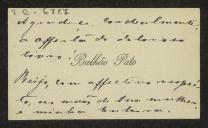 TC-6727
Agradece, cordialmente,
a offerta do delicioso
livro!
Bulhão Pato
Beija, com affectivo respeito,
as mãos de sua mulher
e minha